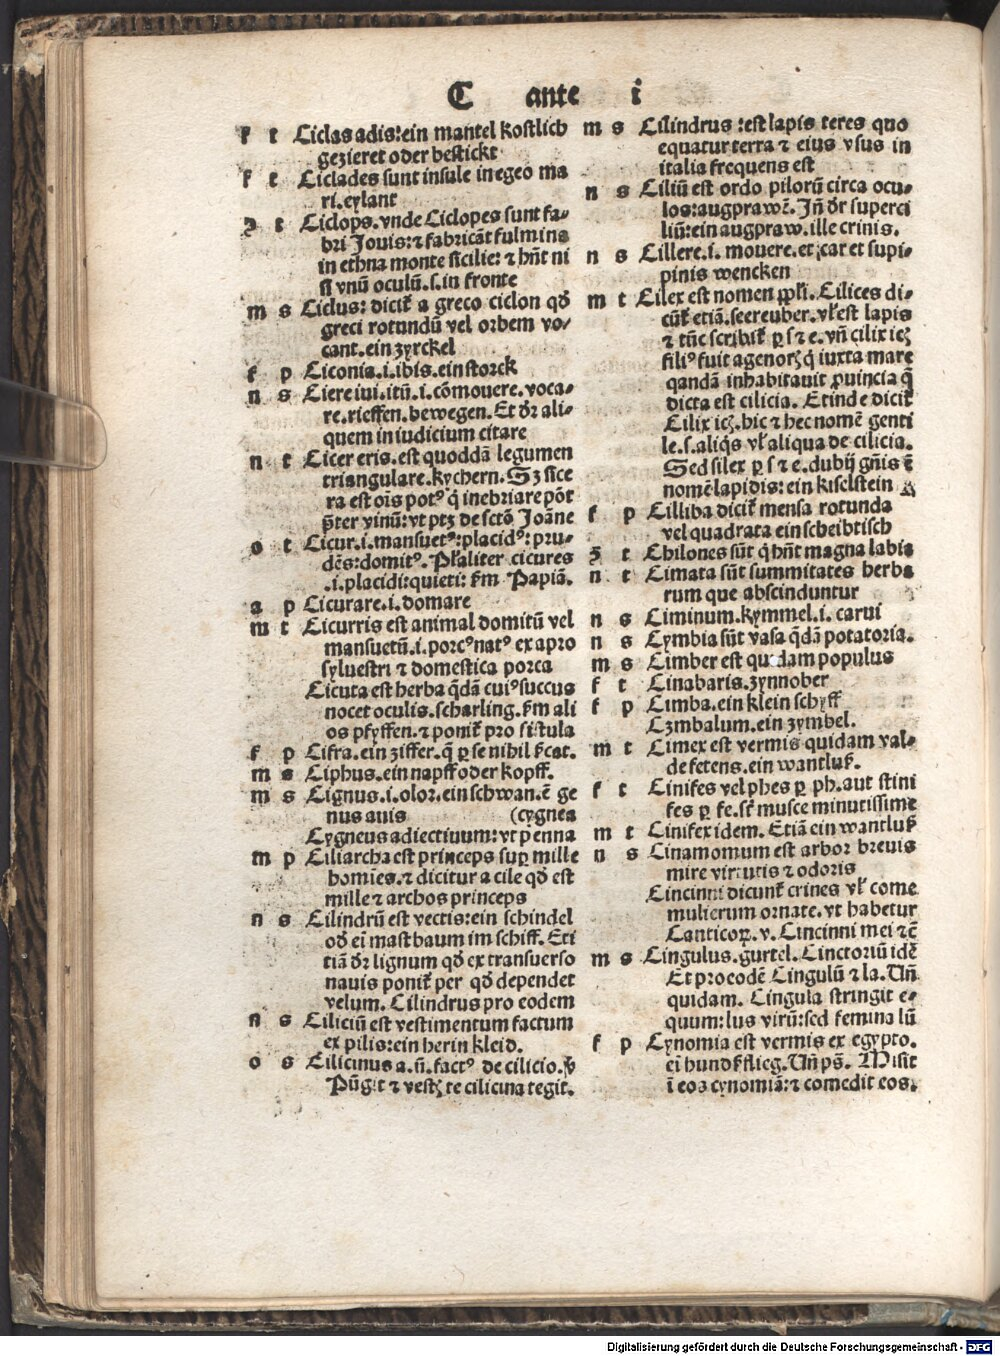 C ante i
f t Ciclas adis:ein mantel kostlich
gezieret oder bestickt
f t Ciclades sunt insule in egeo ma
ri.eylant
ʒ t Ciclops.vnde Ciclopes sunt fa⸗
bri Jouis:⁊ fabricāt fulmina
in ethna monte sicilie: ⁊ hn̄t ni
si vnū oculū.s.in fronte
m s Ciclus: dicit̉ a greco ciclon qđ
greci rotundū vel orbem vo⸗
cant.ein zyrckel
f p Ciconia.i.ibis.ein storck
n s Ciere iui.itū.i.cōmouere.voca⸗
re.rieffen.bewegen.Et dr̄ ali⸗
quem in iudicium citare
n t Cicer eris.est quoddā legumen
triangulare.kychern.Sʒ sice
ra est oīs potꝰ q̇ inebriare pōt
p̄ter vinū:vt ptʒ de sctō Joāne
o t Cicur.i.mansuetꝰ:placidꝰ:pru⸗
dēs:domitꝰ.Pl̄aliter cicures
.i.placidi:quieti: ẜm Papiā.
a p Cicurare.i.domare
m t Cicurris est animal domitū vel
mansuetū.i.porcꝰ natꝰ ex apro
syluestri ⁊ domestica porca
Cicuta est herba q̄dā cuiꝰ succus
nocet oculis.scharling.ẜm ali
os pfyffen.⁊ ponit̉ pro fistula
f p Cifra.ein ziffer.q̄ ꝑ se nihil
m s Ciphus.ein napff oder kopff.
m s Cignus.i.olor.ein schwan.ē ge
nus auis (cygnea
Cygneus adiectiuum:vt penna
m p Ciliarcha est princeps suꝑ mille
homīes.⁊ dicitur a cile qđ est
mille ⁊ archos princeps
n s Cilindrū est vectis:ein schindel
ođ ei mastbaum im schiff.Eti
tiā dr̄ lignum qđ ex transuerso
nauis ponit̉ per qđ dependet
velum. Cilindrus pro eodem
n s Ciliciū est vestimentum factum
ex pilis:ein herin kleid.
o s Cilicinus a.ū.factꝰ de cilicio.
Pūgit ⁊ te cilicina tegit.
m s Cilindrus :est lapis teres quo
equatur terra ⁊ eius vsus in
italia frequens est
n s Ciliū est ordo pilorū circa ocu⸗
los:augprawē. Jn̄ dr̄ superci
liū:ein augpraw.ille crinis.
n s Cillere.i. mouere.et car et supi⸗
pinis wencken
m t Cilex est nomen ꝓpꝛi. Cilices di⸗
cūt̉ etiā.seereuber.vl̄ est lapis
⁊ tūc scribit̉ ꝑ s ⁊ e.vn̄ cilix icꝫ
filiꝰ fuit agenorꝫ q̇ iuxta mare
qandā inhabitauit ꝓuincia q̄
dicta est cilicia. Et inde dicit̉
Cilix icꝫ.hic ⁊ hec nomē genti
le.s.aliq̇s vl̄ aliqua de cilicia.
Sed silex ꝑ s ⁊ e.dubij gn̄is ē
nomē lapidis: ein kiselstein
f p Cilliba dicit̉ mensa rotunda
vel quadrata ein scheibtisch
ʒ t Chilones sūt q̇ hn̄t magna labia
n t Cimata sūt summitates herba
rum que abscinduntur
n s Ciminum.kymmel.i. carui
n s Cymbia sūt vasa q̄dā potatoria.
m s Cimber est quidam populus
f t Cinabaris.zynnober
f p Cimba.ein klein schyff
Czmbalum.ein zymbel.
m t Cimex est vermis quidam val⸗
de fetens.ein wantluß.
f t Cinifes vel phes ꝑ ph.aut stini
fes ꝑ fe.st̄ musce minutissime
m t Cinifex idem. Etiā ein wantluß
n s Cinamomum est arbor breuis
mire virtutis ⁊ odoris
Cincinni dicunt̉ crines vl̄ come
mulierum ornate.vt habetur
Canticoꝝ.v. Cincinni mei ⁊c̄
m s Cingulus.gurtel.Cinctoriū idē
Et pro eodē Cingulū ⁊ la.Un̄
quidam. Cingula stringit e⸗
quum:lus virū:sed femina lū
f p Cynomia est vermis ex egypto.
ei hundßflieg.Un̄ ps. Misit
ī eos cynomiā:⁊ comedit eos.
Digitalisierung gefördert durch die Deutsche Forschungsgemeinschaft - DFG